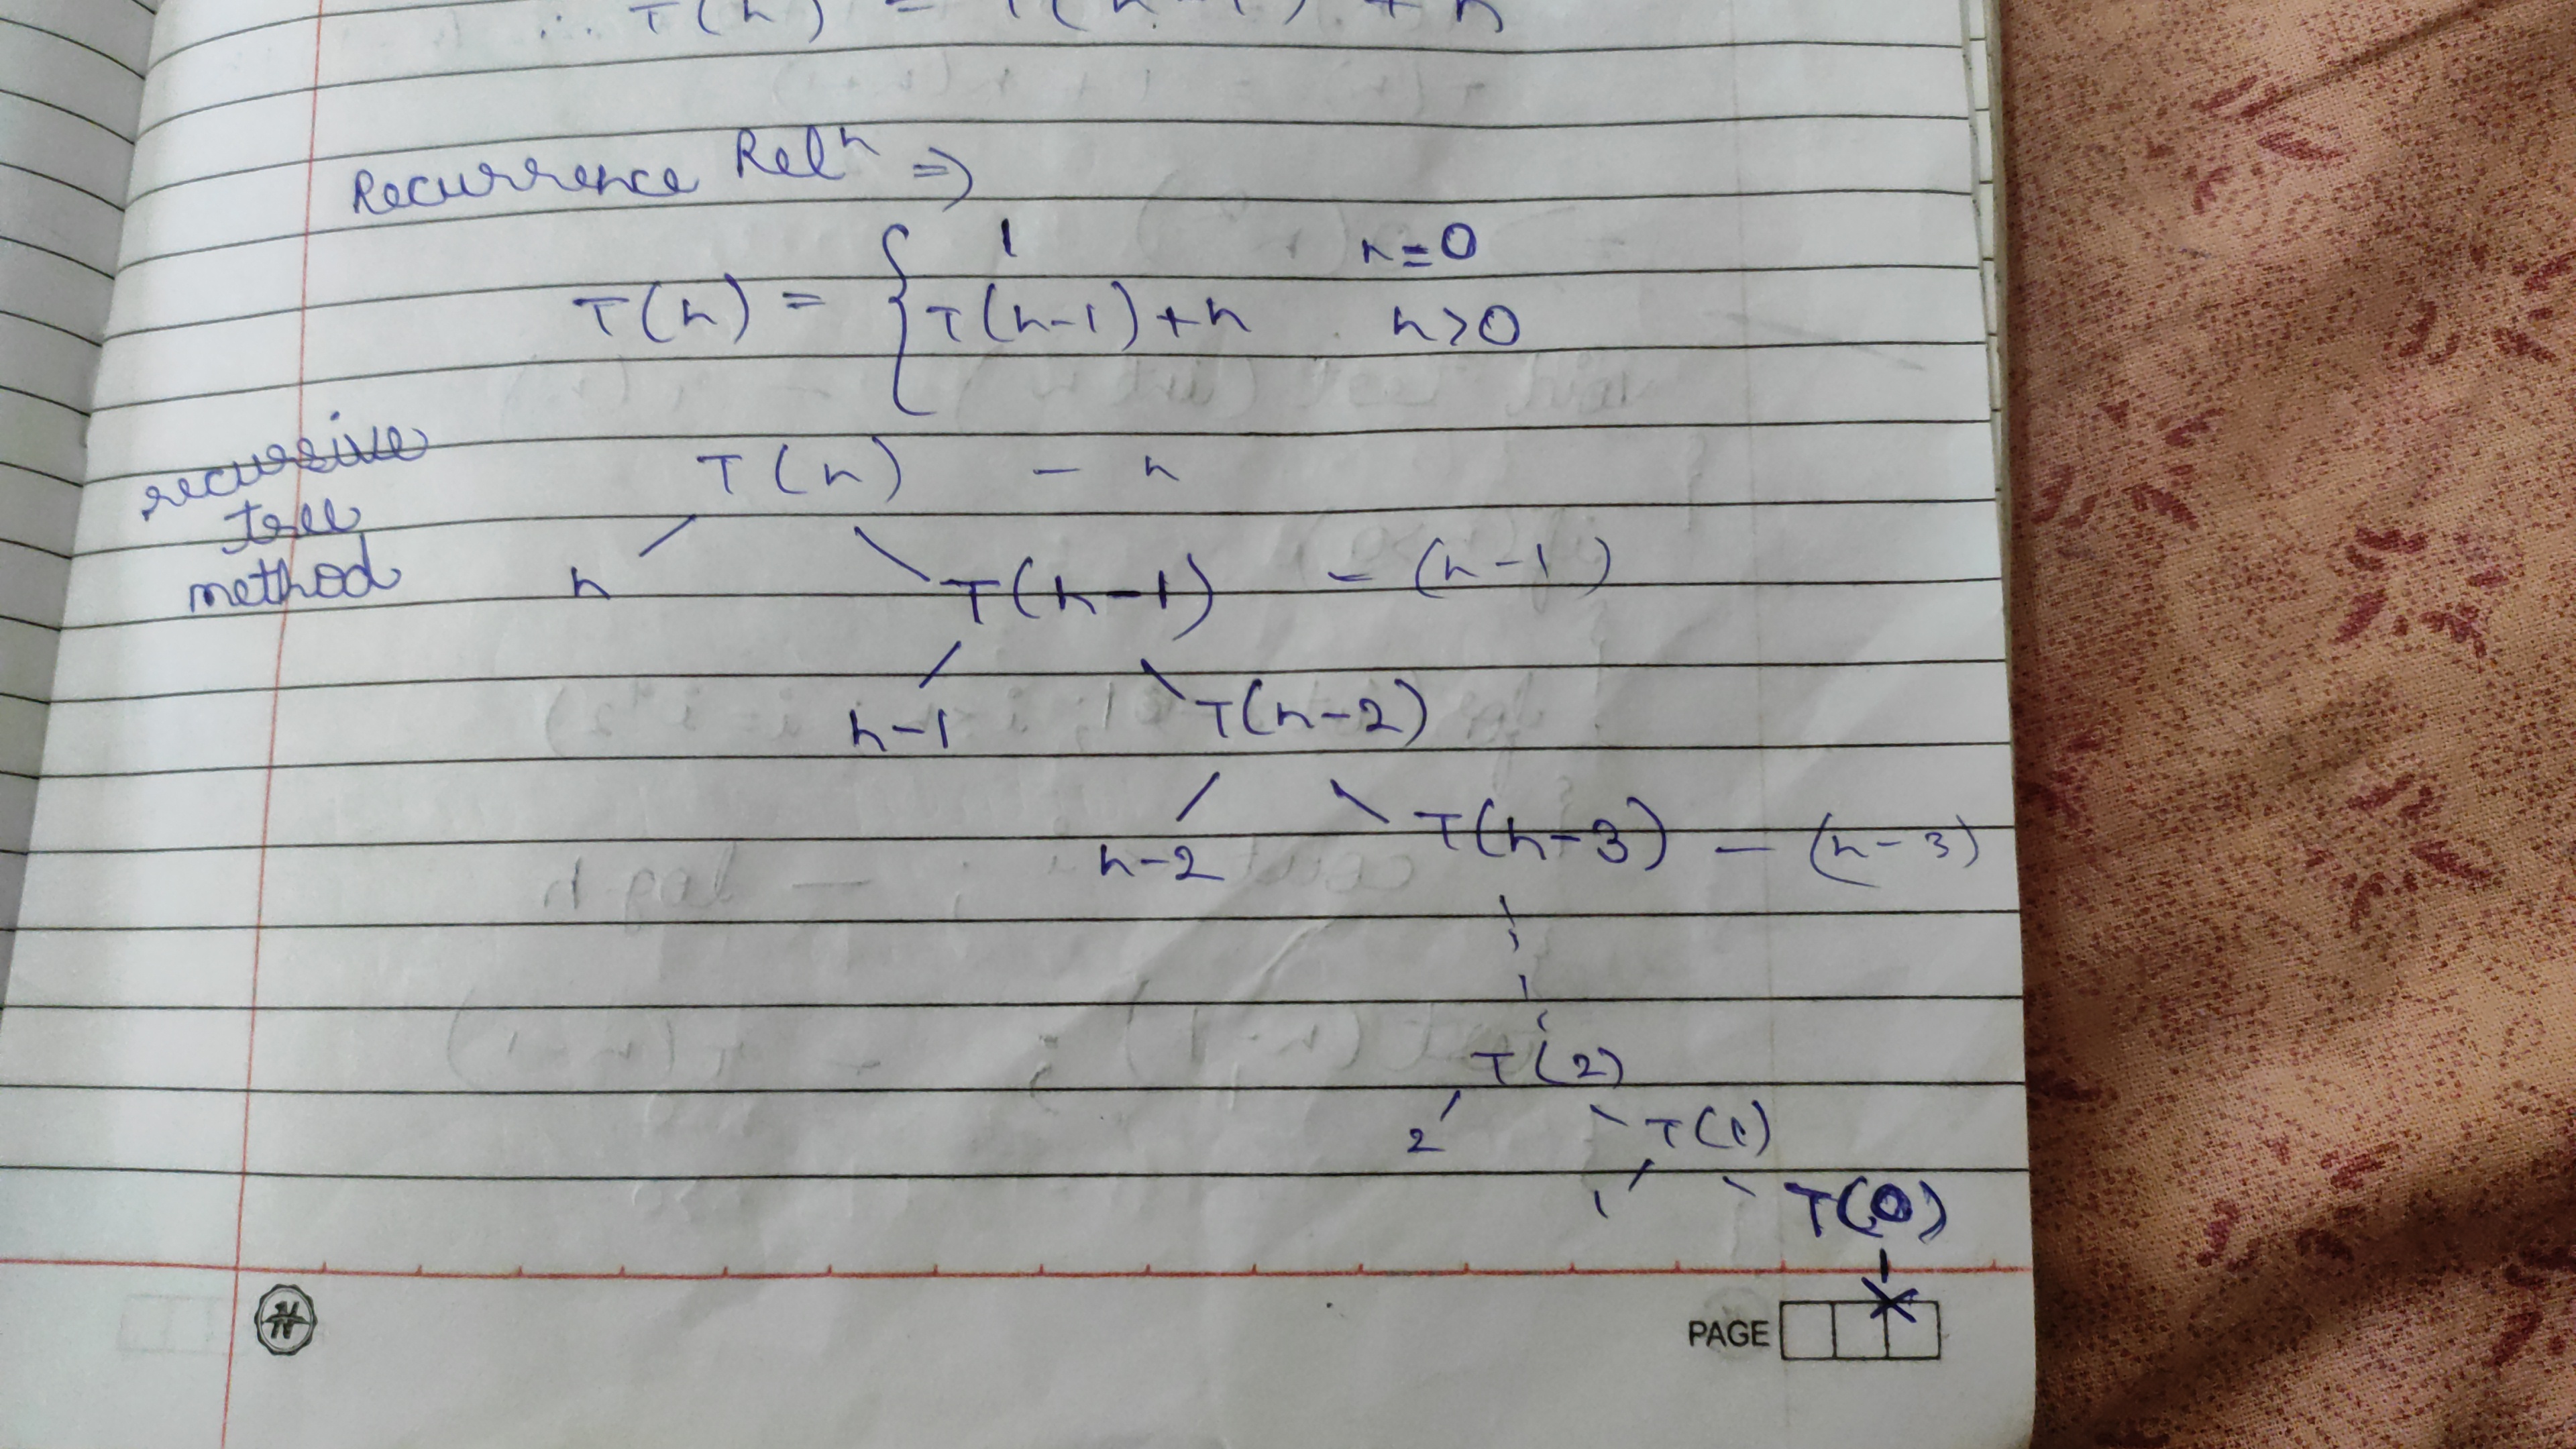 ∴ T(n) = T(n-1) + n
Recurrence Relⁿ ⇒
1 n=0
T(n) = { T(n-1)+n n>0
recursive T(n) — n
tree
method n T(n-1) — (n-1)
n-1 T(n-2)
n-2 T(n-3) — (n-3)
T(2)
2 T(1)
1 T(0)
X
PAGE